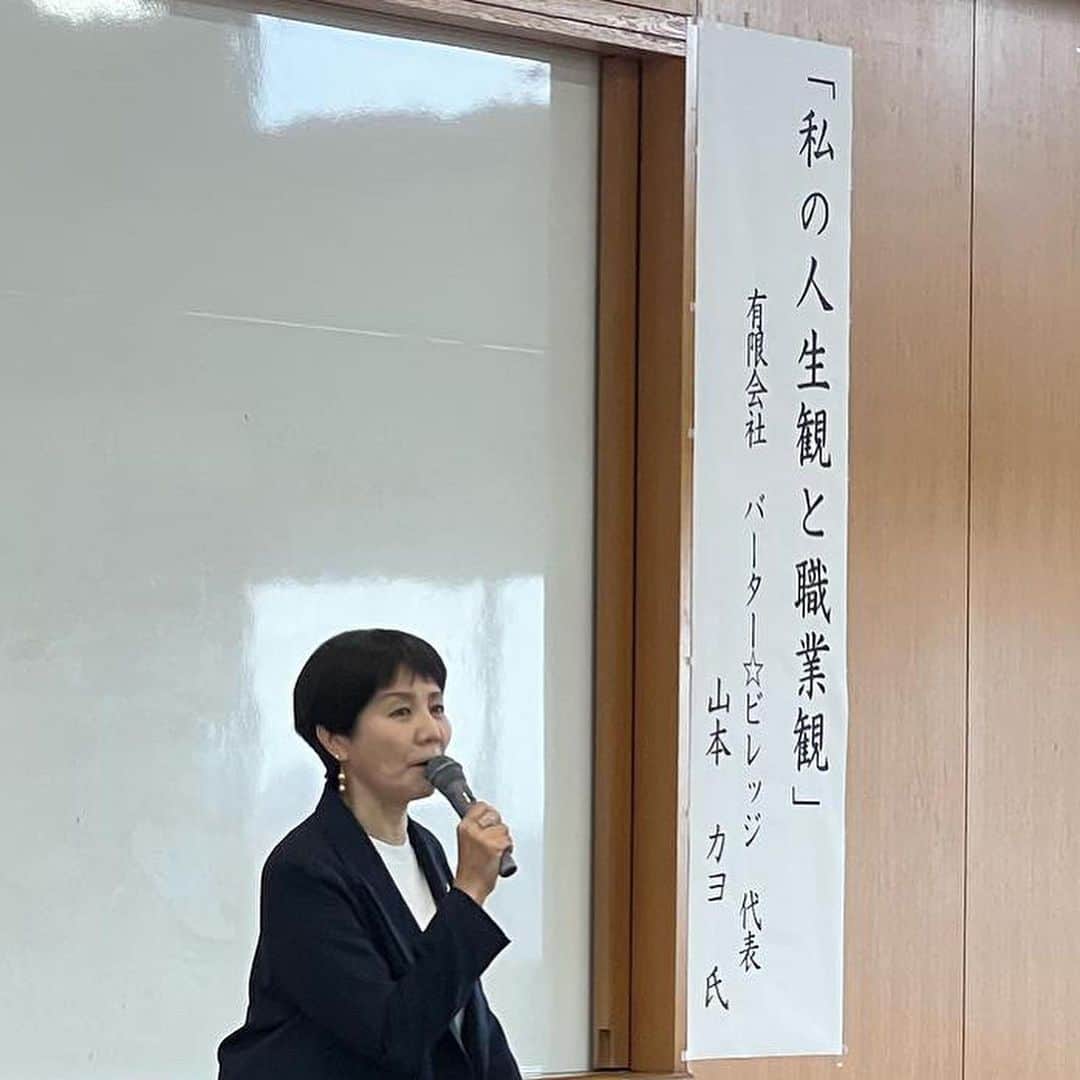 「私の人生観と職業観」
有限会社 バーター☆ビレッジ 代表
山本 カヨ 氏